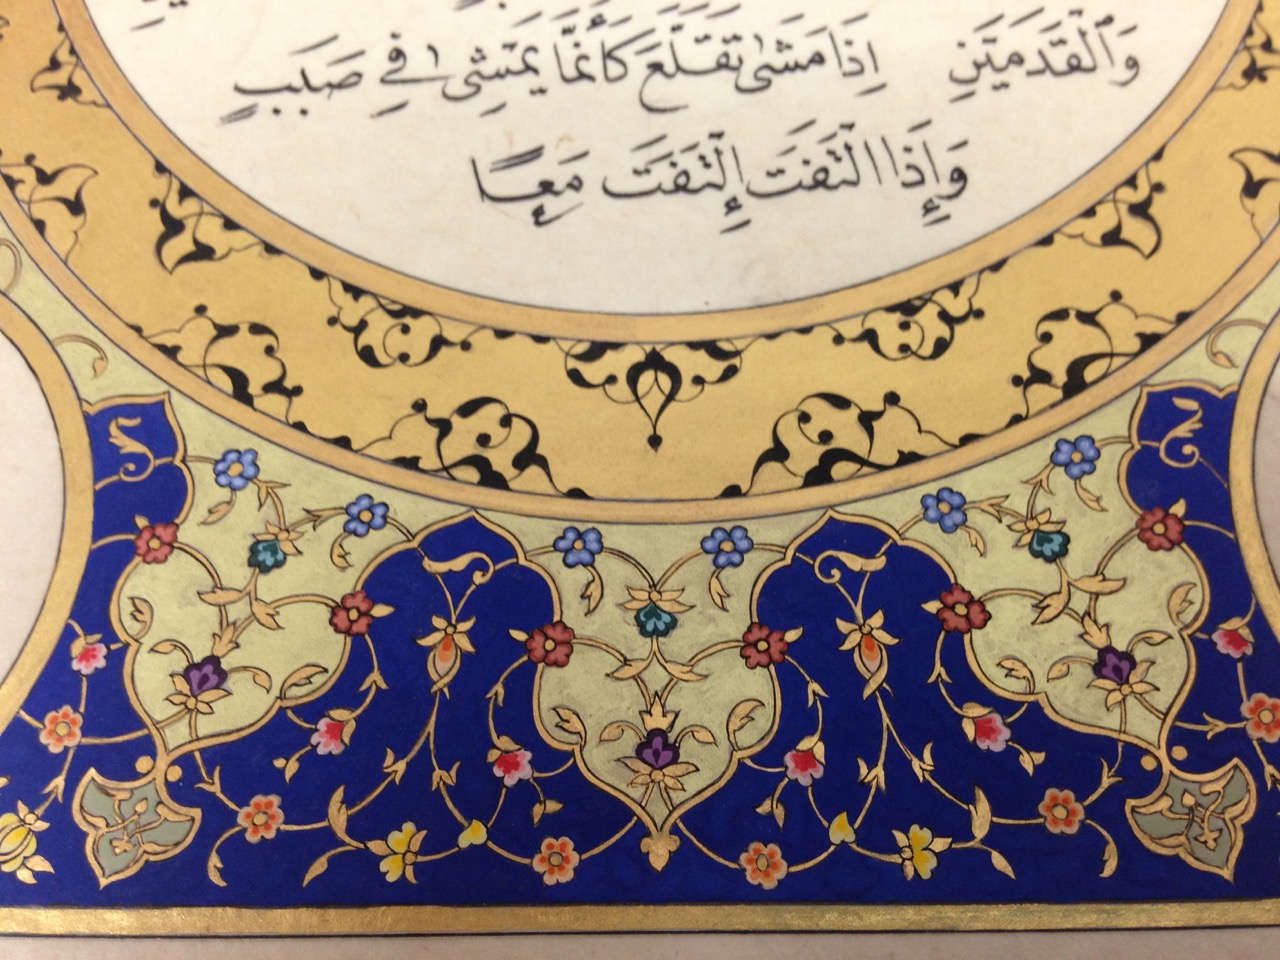 وَٱلْقَدَمَيْنِ إِذَا مَشٰى تَقَلَّعَ كَأَنَّمَا يَمْشِى فِي صَبَبٍ
وَإِذَا الْتَفَتَ إِلْتَفَتَ مَعًا